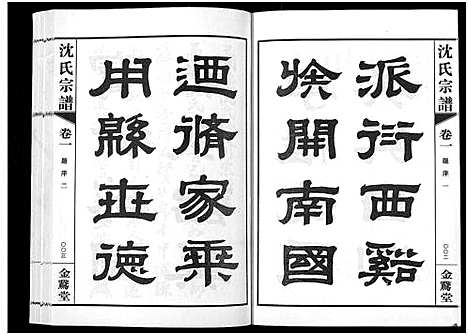 沈氏宗譜
卷一
題序 一
〇〇二
金鵞堂
派衍西谿
族開南國
迺脩家乘
用緜世德
沈氏宗譜
卷一
題序 二
〇〇三
金鵞堂